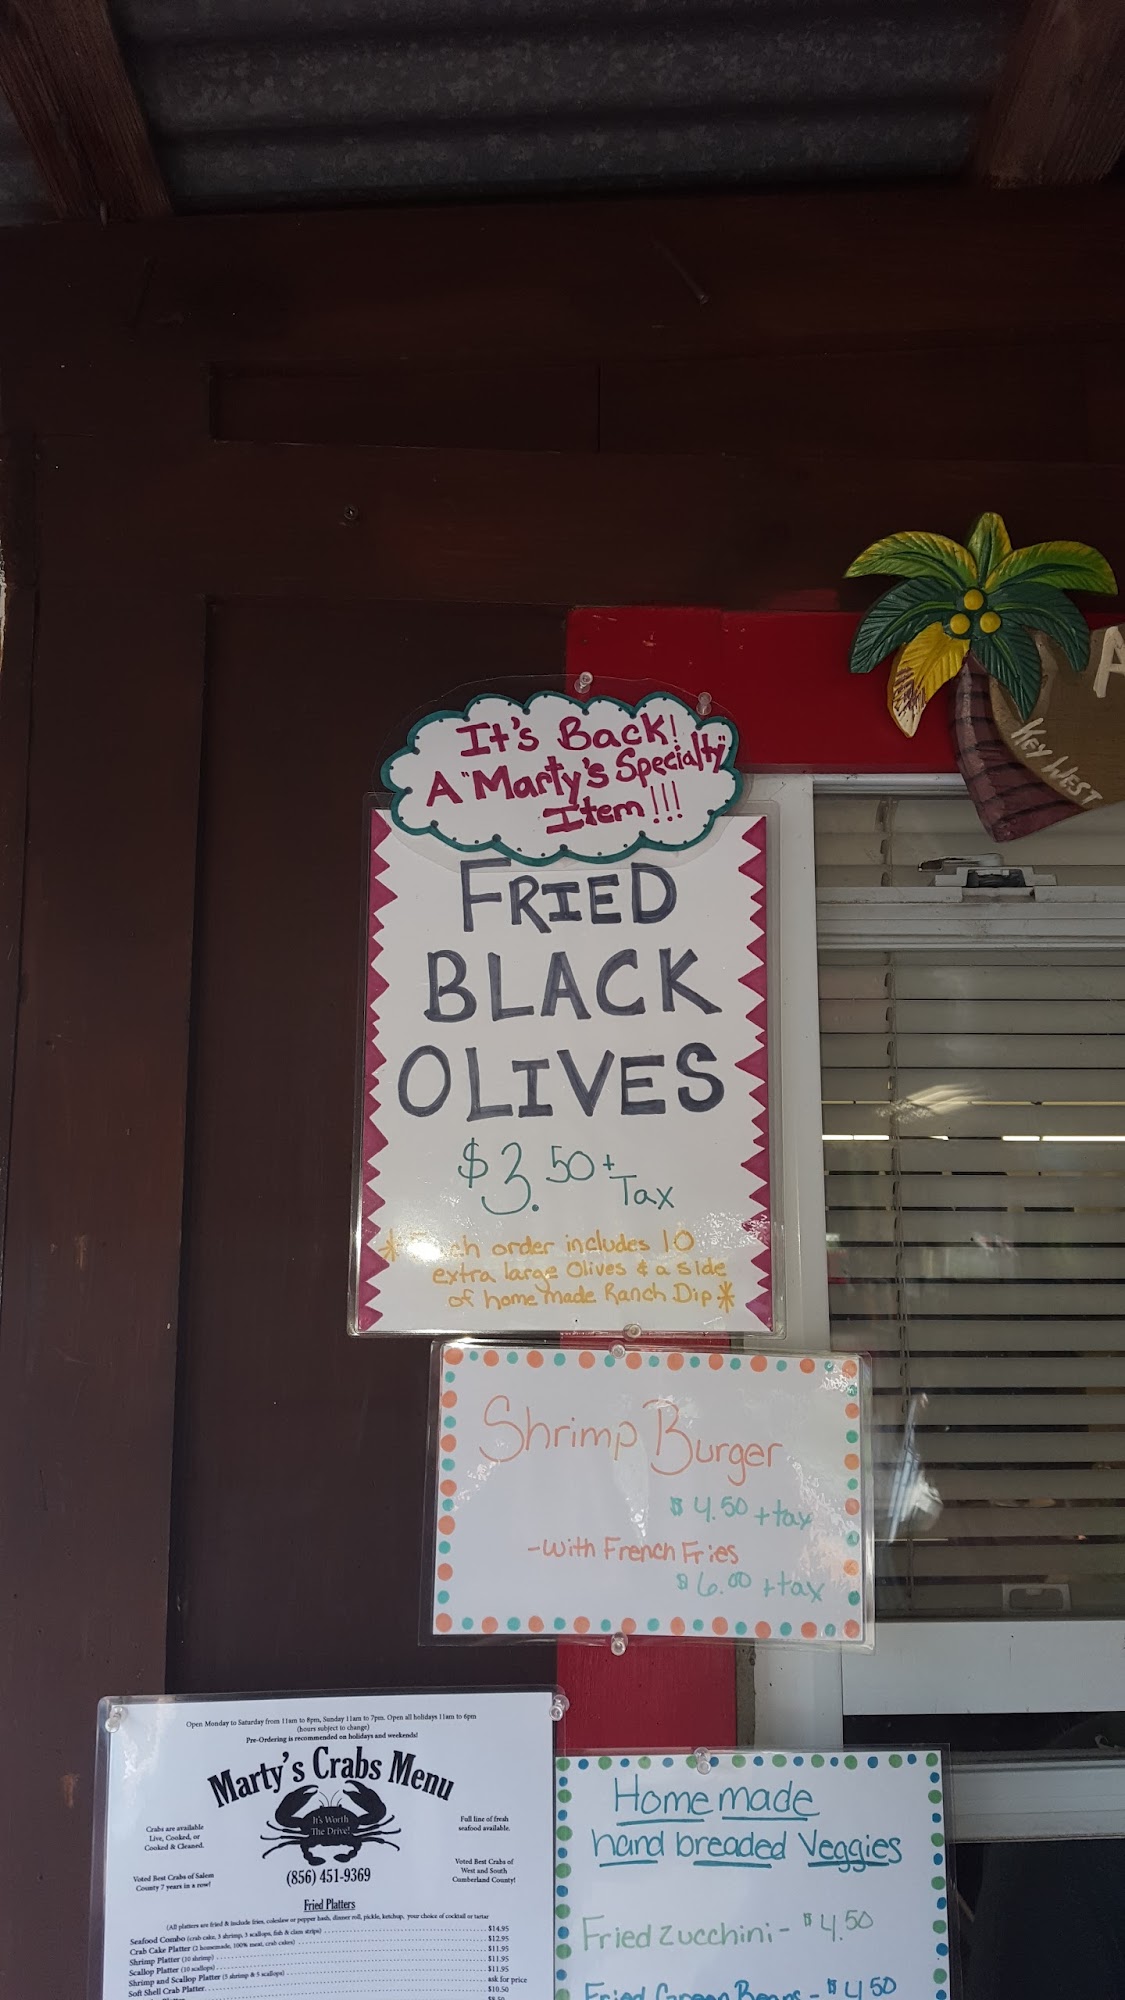 It's Back!
A "Marty's Specialty"
Item!!!
FRIED
BLACK
OLIVES
$3.50 +
Tax
order includes 10
extra large Olives & a side
of home made Ranch Dip *
KEY WEST
Shrimp Burger
$4.50 + tax
-with French Fries
$6.00 + tax
Open Monday to Saturday from 11am to 8pm, Sunday 11am to 7pm. Open all holidays 11am to 6pm
(hours subject to change)
Pre-Ordering is recommended on holidays and weekends!
Marty's Crabs Menu
It's Worth
The Drive!
Crabs are available
Live, Cooked, or
Cooked & Cleaned.
Full line of fresh
seafood available.
Voted Best Crabs of Salem
County 7 years in a row!
(856) 451-9369
Voted Best Crabs of
West and South
Cumberland County!
Fried Platters
(All platters are fried & include fries, coleslaw or pepper hash, dinner roll, pickle, ketchup, your choice of cocktail or tartar
Seafood Combo (crab cake, 3 shrimp, 3 scallops, fish & clam strips) $14.95
Crab Cake Platter (2 homemade, 100% meat, crab cakes) $12.95
Shrimp Platter (10 shrimp) $11.95
Scallop Platter (10 scallops) $11.95
Shrimp and Scallop Platter (5 shrimp & 5 scallops) $11.95
Soft Shell Crab Platter ask for price
$10.50
Home made
hand breaded Veggies
Fried Zucchini - $4.50
Fried Green Beans - $4.50